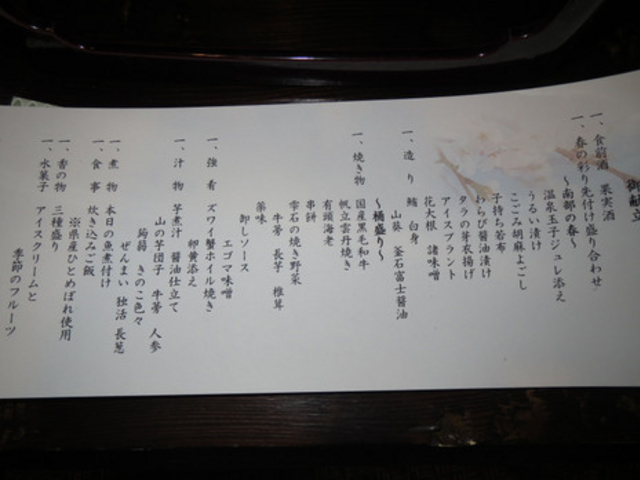 御献立
一、食前酒 果実酒
一、春の彩り先付け盛り合わせ
～南部の春～
温泉玉子ジュレ添え
うるい漬け
こごみ胡麻よごし
子持ち若布
わらび醤油漬け
タラの芽衣揚げ
アイスプラント
花大根 諸味噌
一、造り 鮪 白身
山葵 釜石富士醤油
～桶盛り～
一、焼き物 国産黒毛和牛
帆立雲丹焼き
有頭海老
串餅
雫石の焼き野菜
牛蒡 長芋 椎茸
薬味
卸しソース
エゴマ味噌
一、強肴 ズワイ蟹ホイル焼き
卵黄添え
一、汁物 芋煮汁 醤油仕立て
山の芋団子 牛蒡 人参
蒟蒻 きのこ色々
ぜんまい 独活 長葱
一、煮物 本日の魚煮付け
一、食事 炊き込みご飯
※県産ひとめぼれ使用
一、香の物 三種盛り
一、水菓子 アイスクリームと
季節のフルーツ